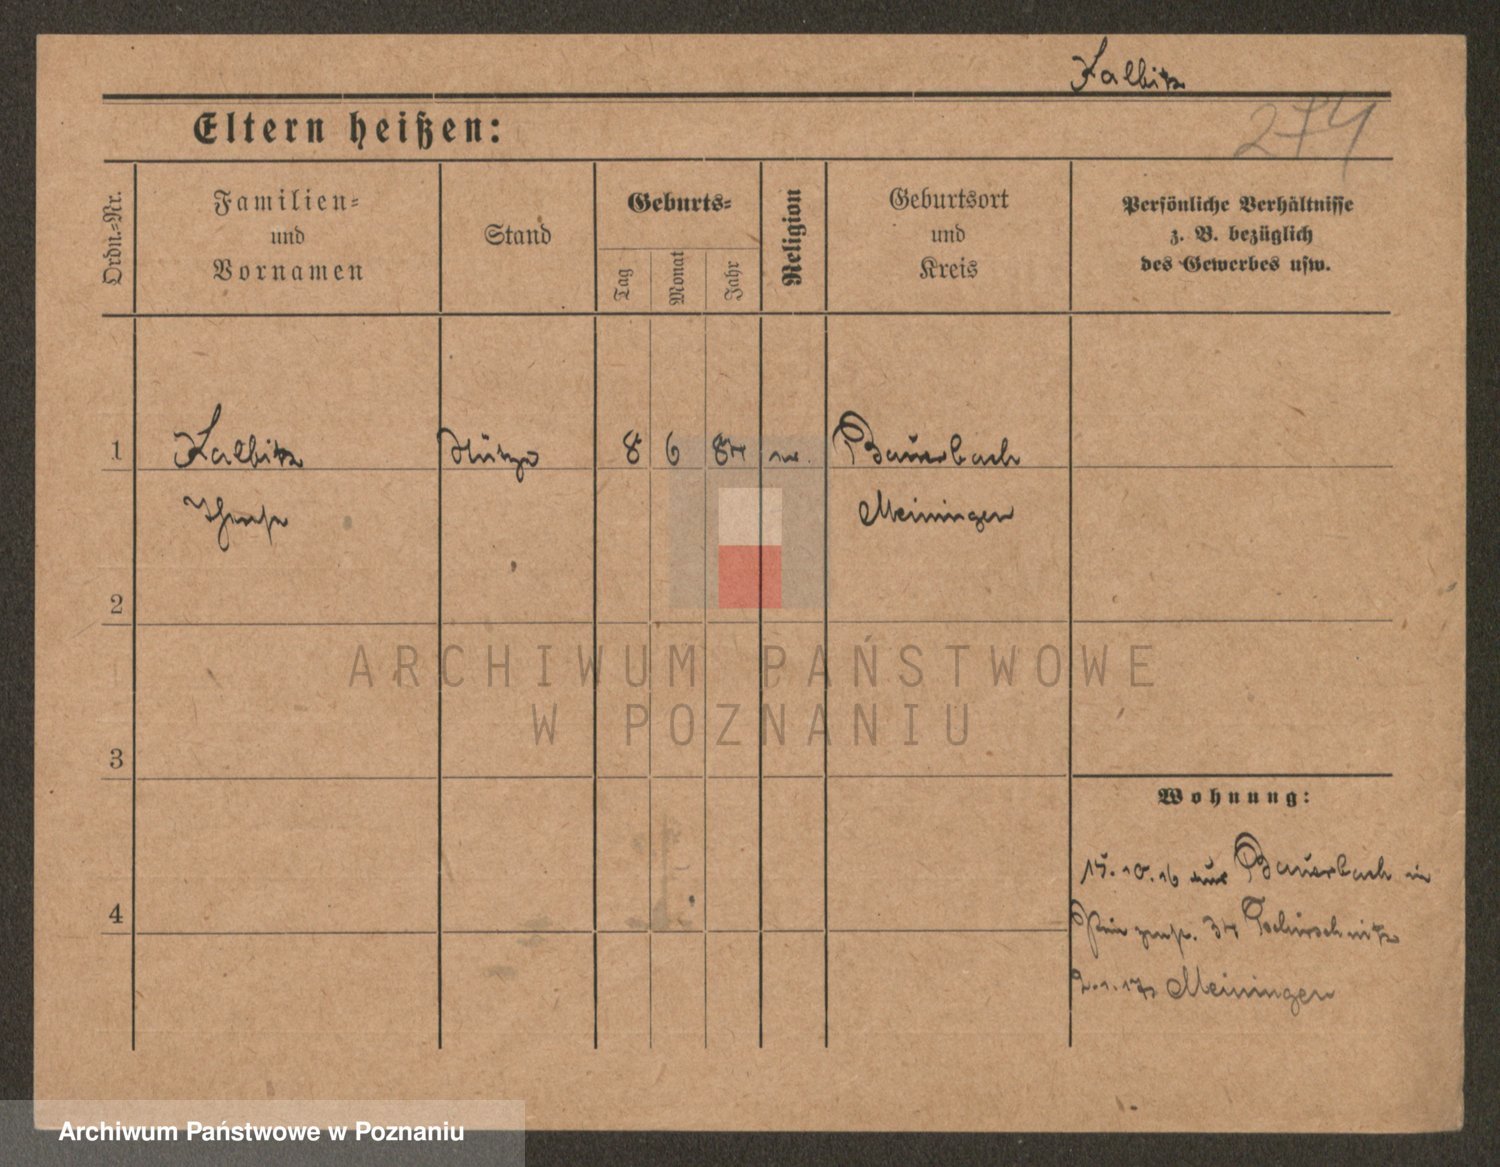 Kalbitz
274
Eltern heißen:
Ordn.-Nr.
Familien-
und
Vornamen
Stand
Geburts-
Tag
Monat
Jahr
Religion
Geburtsort
und
Kreis
Persönliche Verhältnisse
z. B. bezüglich
des Gewerbes usw.
1
Kalbitz
Stütze
8
6
84
Bauerbach
Meiningen
2
3
4
Wohnung:
15.10.16 aus Bauerbach in
34 Tschirschnitz
2.1.17 Meiningen
ARCHIWUM PAŃSTWOWE
W POZNANIU
Archiwum Państwowe w Poznaniu